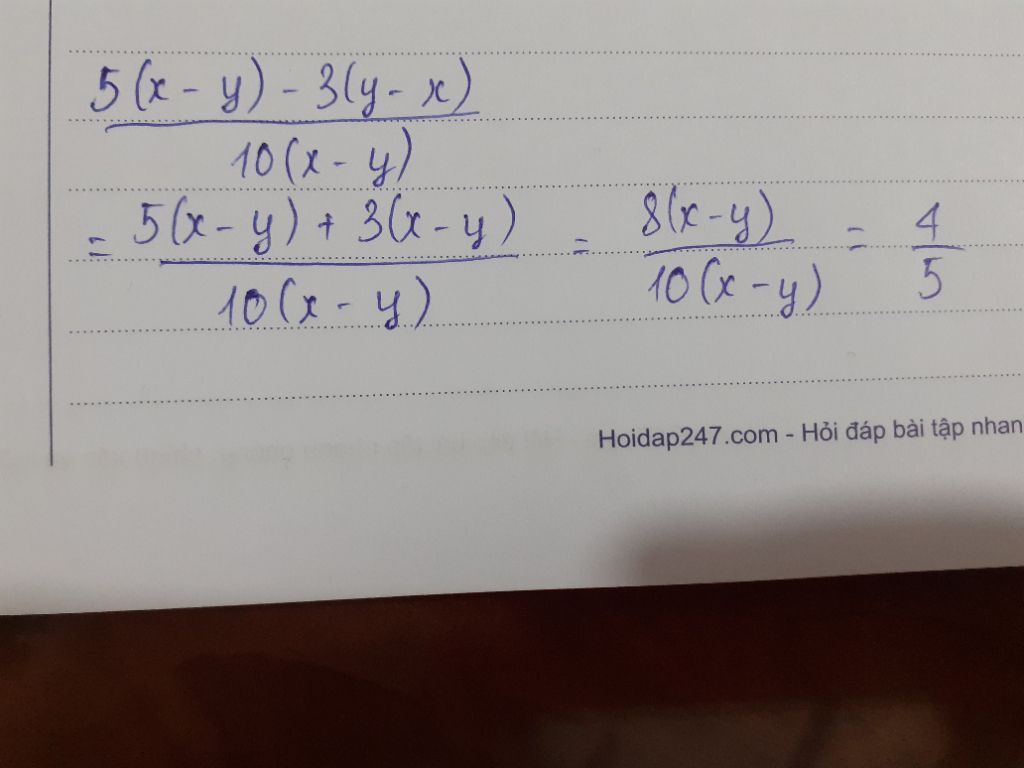 5(x - y) - 3(y - x)
10(x - y)
= 5(x - y) + 3(x - y) = 8(x - y) = 4
10(x - y) 10(x - y) 5
Hoidap247.com - Hỏi đáp bài tập nhan